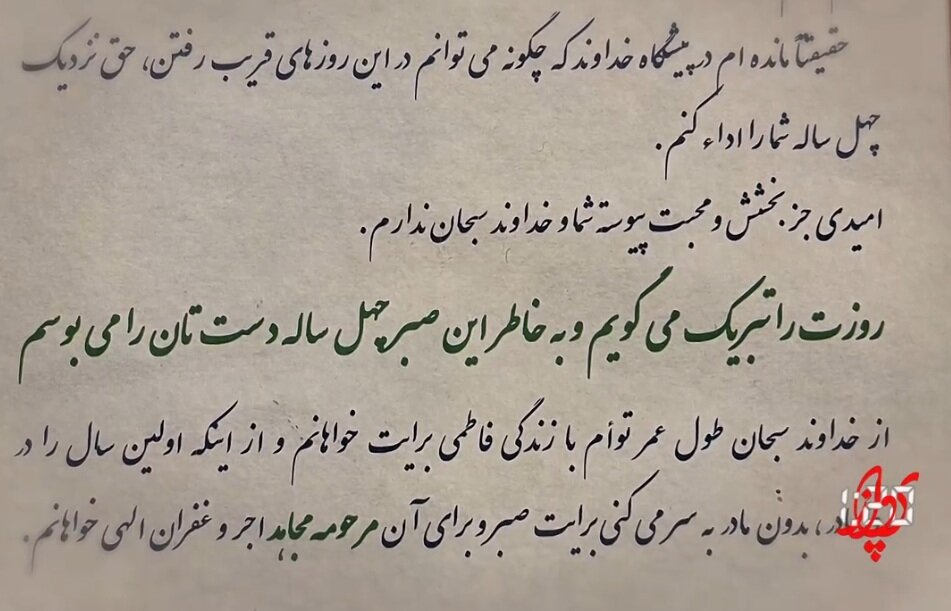 حقیقتاً مانده ام در پیشگاه خداوند که چگونه می توانم در این روزهای قریب رفتن، حق نزدیک
چهل ساله شما را اداء کنم.
امیدی جز بخشش و محبت پیوسته شما و خداوند سبحان ندارم.
روزت را تبریک می گویم و به خاطر این صبر چهل ساله دست تان را می بوسم
از خداوند سبحان طول عمر توأم با زندگی فاطمی برایت خواهانم و از اینکه اولین سال را در
بدون مادر به سر می کنی برایت صبر و برای آن مرحومه مجاهد اجر و غفران الهی خواهانم.